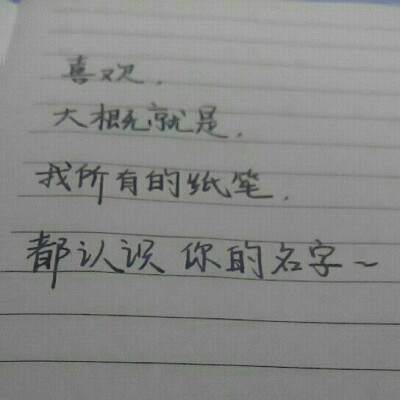 喜欢，
大概就是，
我所有的纸笔，
都认识你的名字~